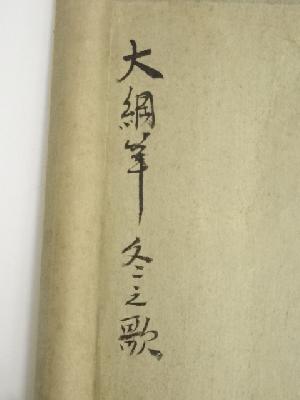 大綱筆 冬之歌